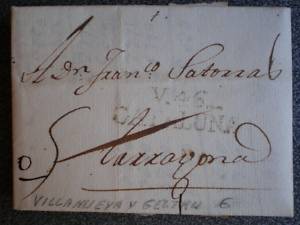 A Dn. Franco. Satorras
V.a 6.
CATALUÑA
Tarragona
VILLANUEVA Y GELTRU 6